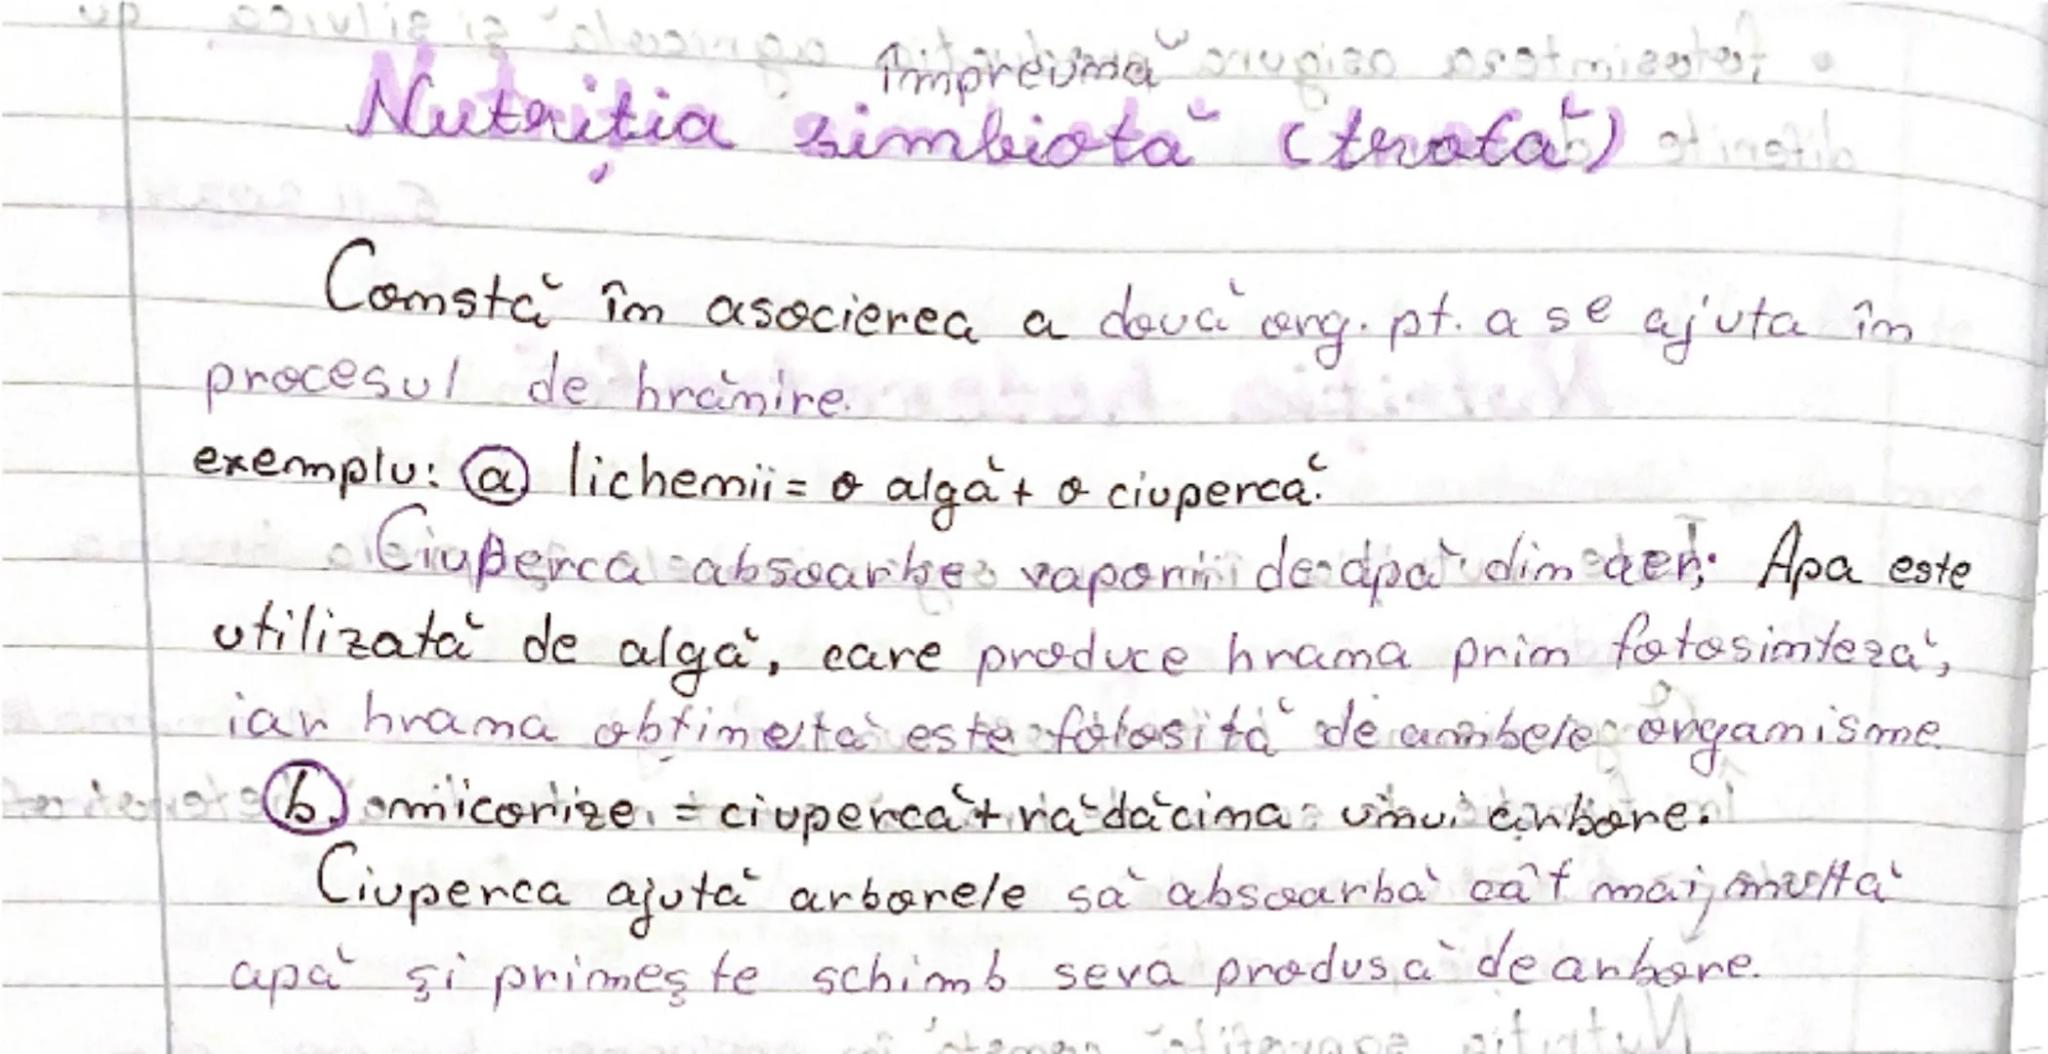 împreună
Nutriția simbiotă (trofă)
Constă în asocierea a două org. pt. a se ajuta în
procesul de hrănire.
exemplu: a lichenii = o algă + o ciupercă.
Ciuperca absoarbe vaporii de apă din aer. Apa este
utilizată de algă, care produce hrana prin fotosinteză,
iar hrana obținetă este folosită de ambele organisme.
b. micorize = ciupercă + rădăcina unui arbore.
Ciuperca ajută arborele să absoarbă cât mai multă
apă și primește schimb seva produsă de arbore.